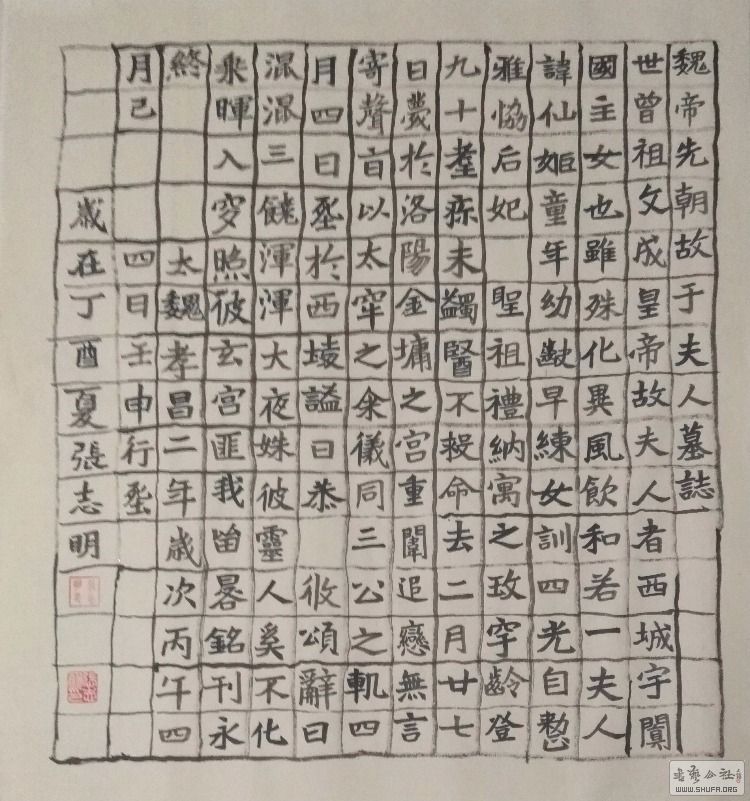 魏帝先朝故于夫人墓誌
世曾祖文成皇帝故夫人者西城宇闐
國主女也雖殊化異風飲和若一夫人
諱仙姬童年幼齔早練女訓四光自
雅協后妃 聖祖禮納寓之玫宇齡登
九十耋疹未蠲醫不命去二月廿七
日薨於洛陽金墉之宮重闈追戀無言
寄聲旨以太牢之祭儀同三公之軌四
月四日葬於西陵謚曰恭 攸頌辭曰
混混三饒渾渾大夜姝彼靈人奚不化
乘暉入穸照彼玄宮匪我留晷銘刊永
終 太魏孝昌二年歲次丙午四
月己 四日壬申行葬
歲在丁酉夏張志明
書藝公社
WWW.SHUFA.ORG